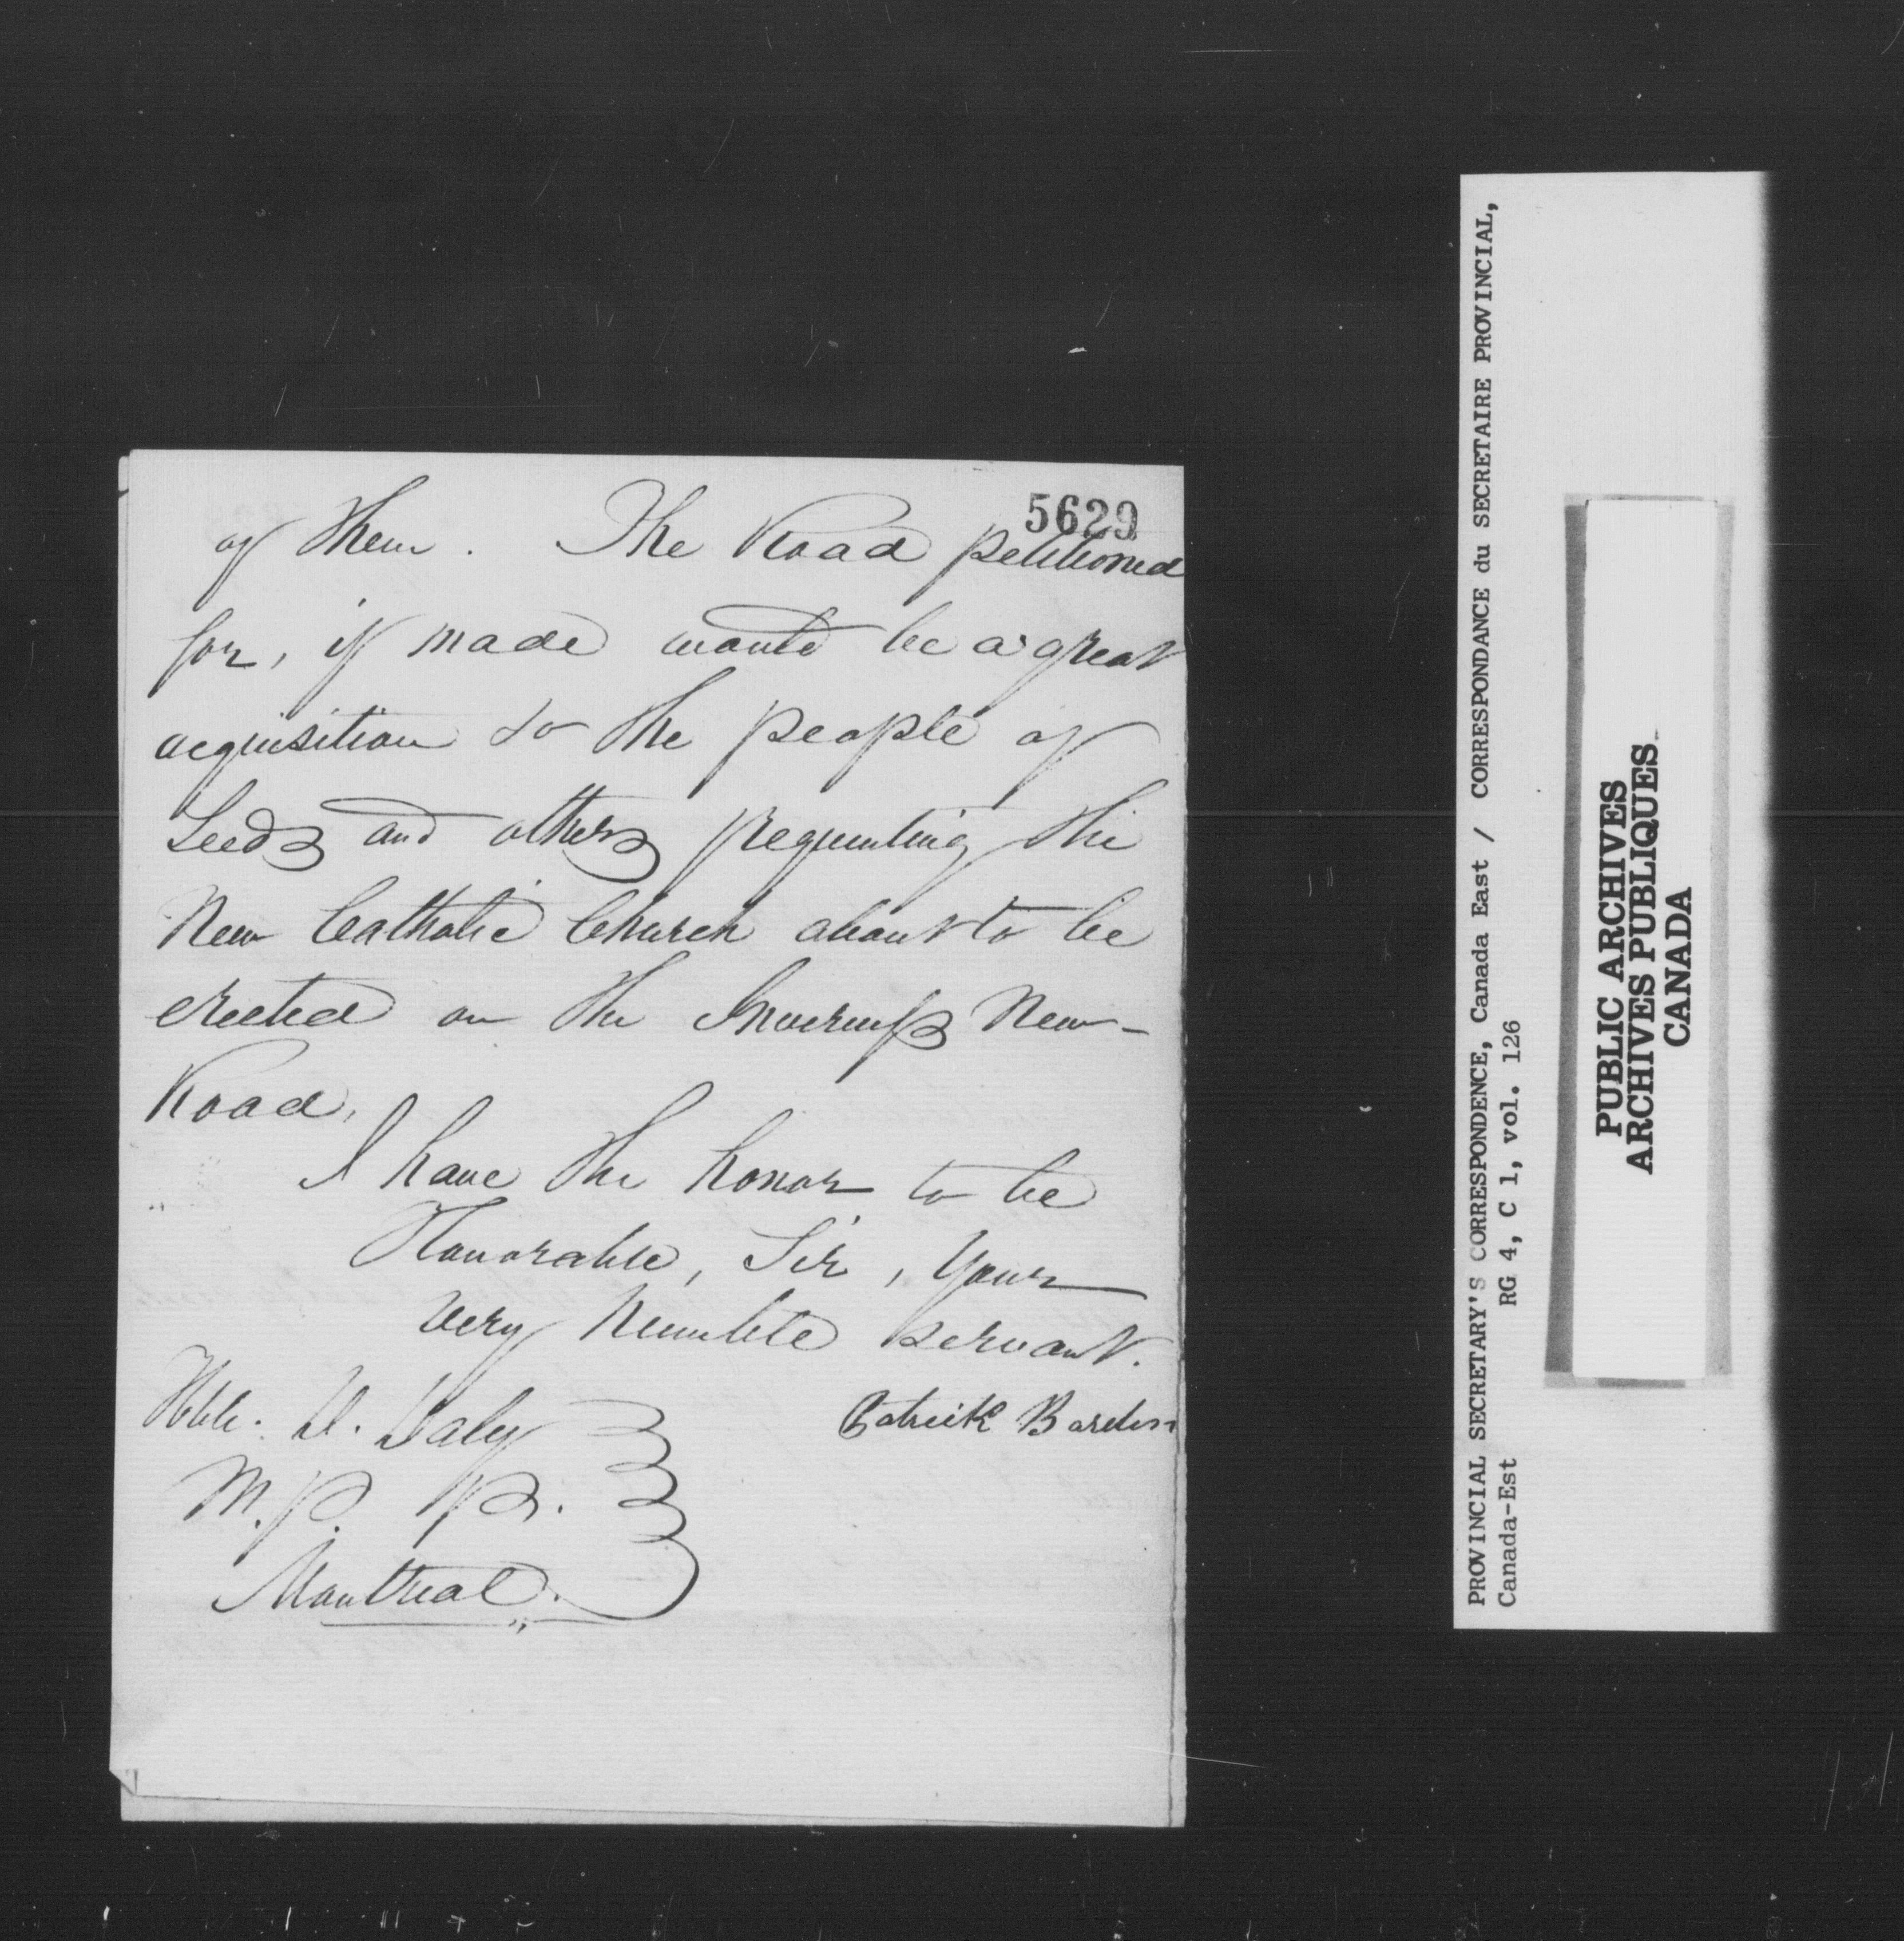 5629
of them. The Road petitioned
for, if made would be a great
acquisition to the people of
Leeds and others frequenting the
New Catholic Church about to be
erected on the Inverness New
Road,
I have the honor to be
Honorable, Sir, Your
very humble servant.
Patrick Barden
Hble. D. Daly
M.P.P.
Montreal.
PROVINCIAL SECRETARY'S CORRESPONDENCE, Canada East / CORRESPONDANCE du SECRETAIRE PROVINCIAL,
Canada-Est RG 4, C 1, vol. 126
PUBLIC ARCHIVES
ARCHIVES PUBLIQUES
CANADA